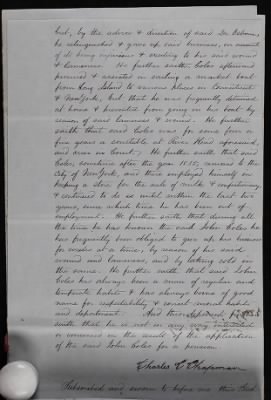 that, by the advice & direction of said Dr. Osborn,
he relinquished & gave up said business, on account
of its being injurious & exciting to his said wound
& lameness. He further saith Coles afterward
pursued & assisted in sailing a market boat
from Long Island to various places in Connecticut
& New York, but that he was frequently detained
at home & prevented from going in his boat by
reason of said lameness & wound. He further
saith that said Coles was for some four or
five years a constable at River Head aforesaid,
and crier in Court. He further saith that said
Coles, sometime after the year 1835, removed to the
City of New York, and there employed himself in
keeping a store for the sale of milk & confectionary,
& continued to do so until within the last two
years, since which time he has been out of
employment. He further saith that during all
the time he has known the said John Coles he
has frequently been obliged to give up his business
for weeks at a time, by reason of his said
wound and lameness, and by taking cold in
the same. He further saith that said John
Coles has always been a man of regular and
temperate habits & has always borne of good
name for respectability & correct moral habits
and deportment. And this deponent further
saith that he is not in any way interested
or concerned in the result of the application
of the said John Coles for a pension.
Charles V Chapman
Subscribed and sworn to before me this